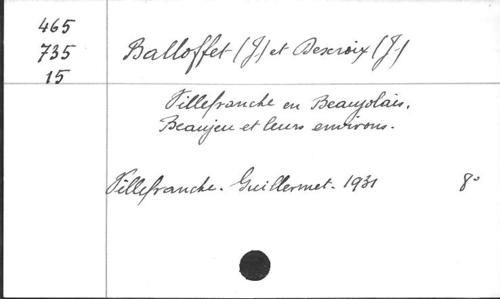 465
735
15
Balloffet (J) et Descroix (J.)
Villefranche en Beaujolais,
Beaujeu et leurs environs.
Villefranche. Guillermet. 1931 8°